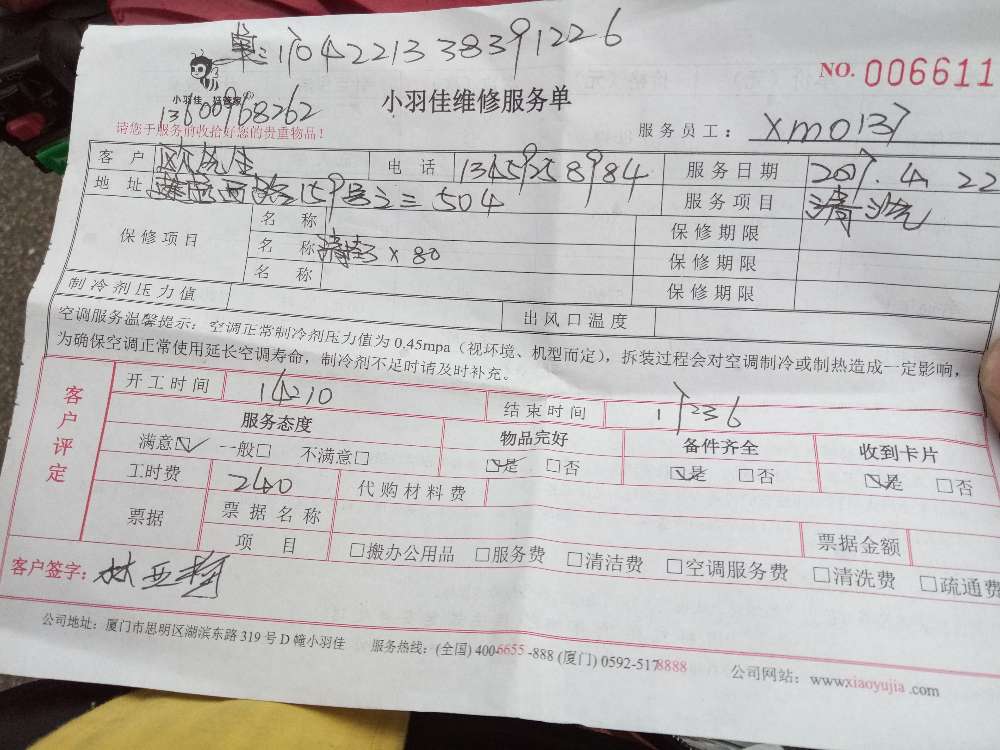 单:1704221338391226
NO. 006611
小羽佳
13600968262
小羽佳维修服务单
请您于服务前收拾好您的贵重物品！
服务员工： xm0137
客户 欧先生 电话 13459258984 服务日期 2017.4.22
地址 159号之三504 服务项目 清洗
保修项目 名称 保修期限
名称 x 80 保修期限
名称 保修期限
制冷剂压力值 出风口温度
空调服务温馨提示：空调正常制冷剂压力值为 0.45mpa（视环境、机型而定），拆装过程会对空调制冷或制热造成一定影响，
为确保空调正常使用延长空调寿命，制冷剂不足时请及时补充。
客户评定
开工时间 14210 结束时间 17236
服务态度 物品完好 备件齐全 收到卡片
满意☑ 一般□ 不满意□ ☑是 □否 ☑是 □否 ☑是 □否
工时费 240 代购材料费
票据 票据名称 票据金额
项目 □搬办公用品 □服务费 □清洁费 □空调服务费 □清洗费 □疏通费
客户签字：林亚
公司地址：厦门市思明区湖滨东路 319 号 D 幢小羽佳 服务热线：(全国) 400-6655-888 (厦门) 0592-5178888 公司网站：www.xiaoyujia.com